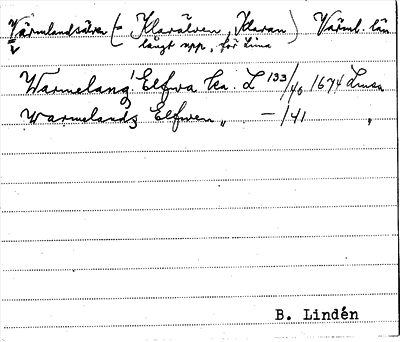 Värmlandsälven (= Klarälven, Klaran) Värml. län
långt upp, för Lima
Warmelang Elfwa ka. L 133/40 1674 Lima
Warmelands Elfwen „ — /41 „
B. Lindén